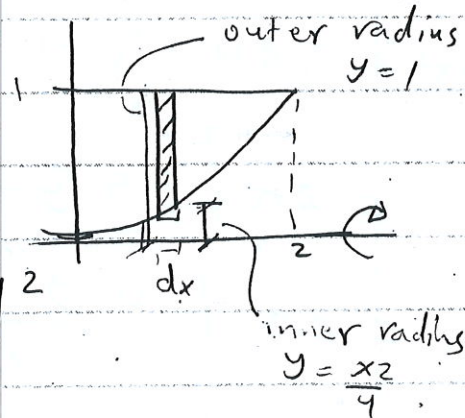 outer radius
y = 1
1
2
2
dx
inner radius
y = x2/4